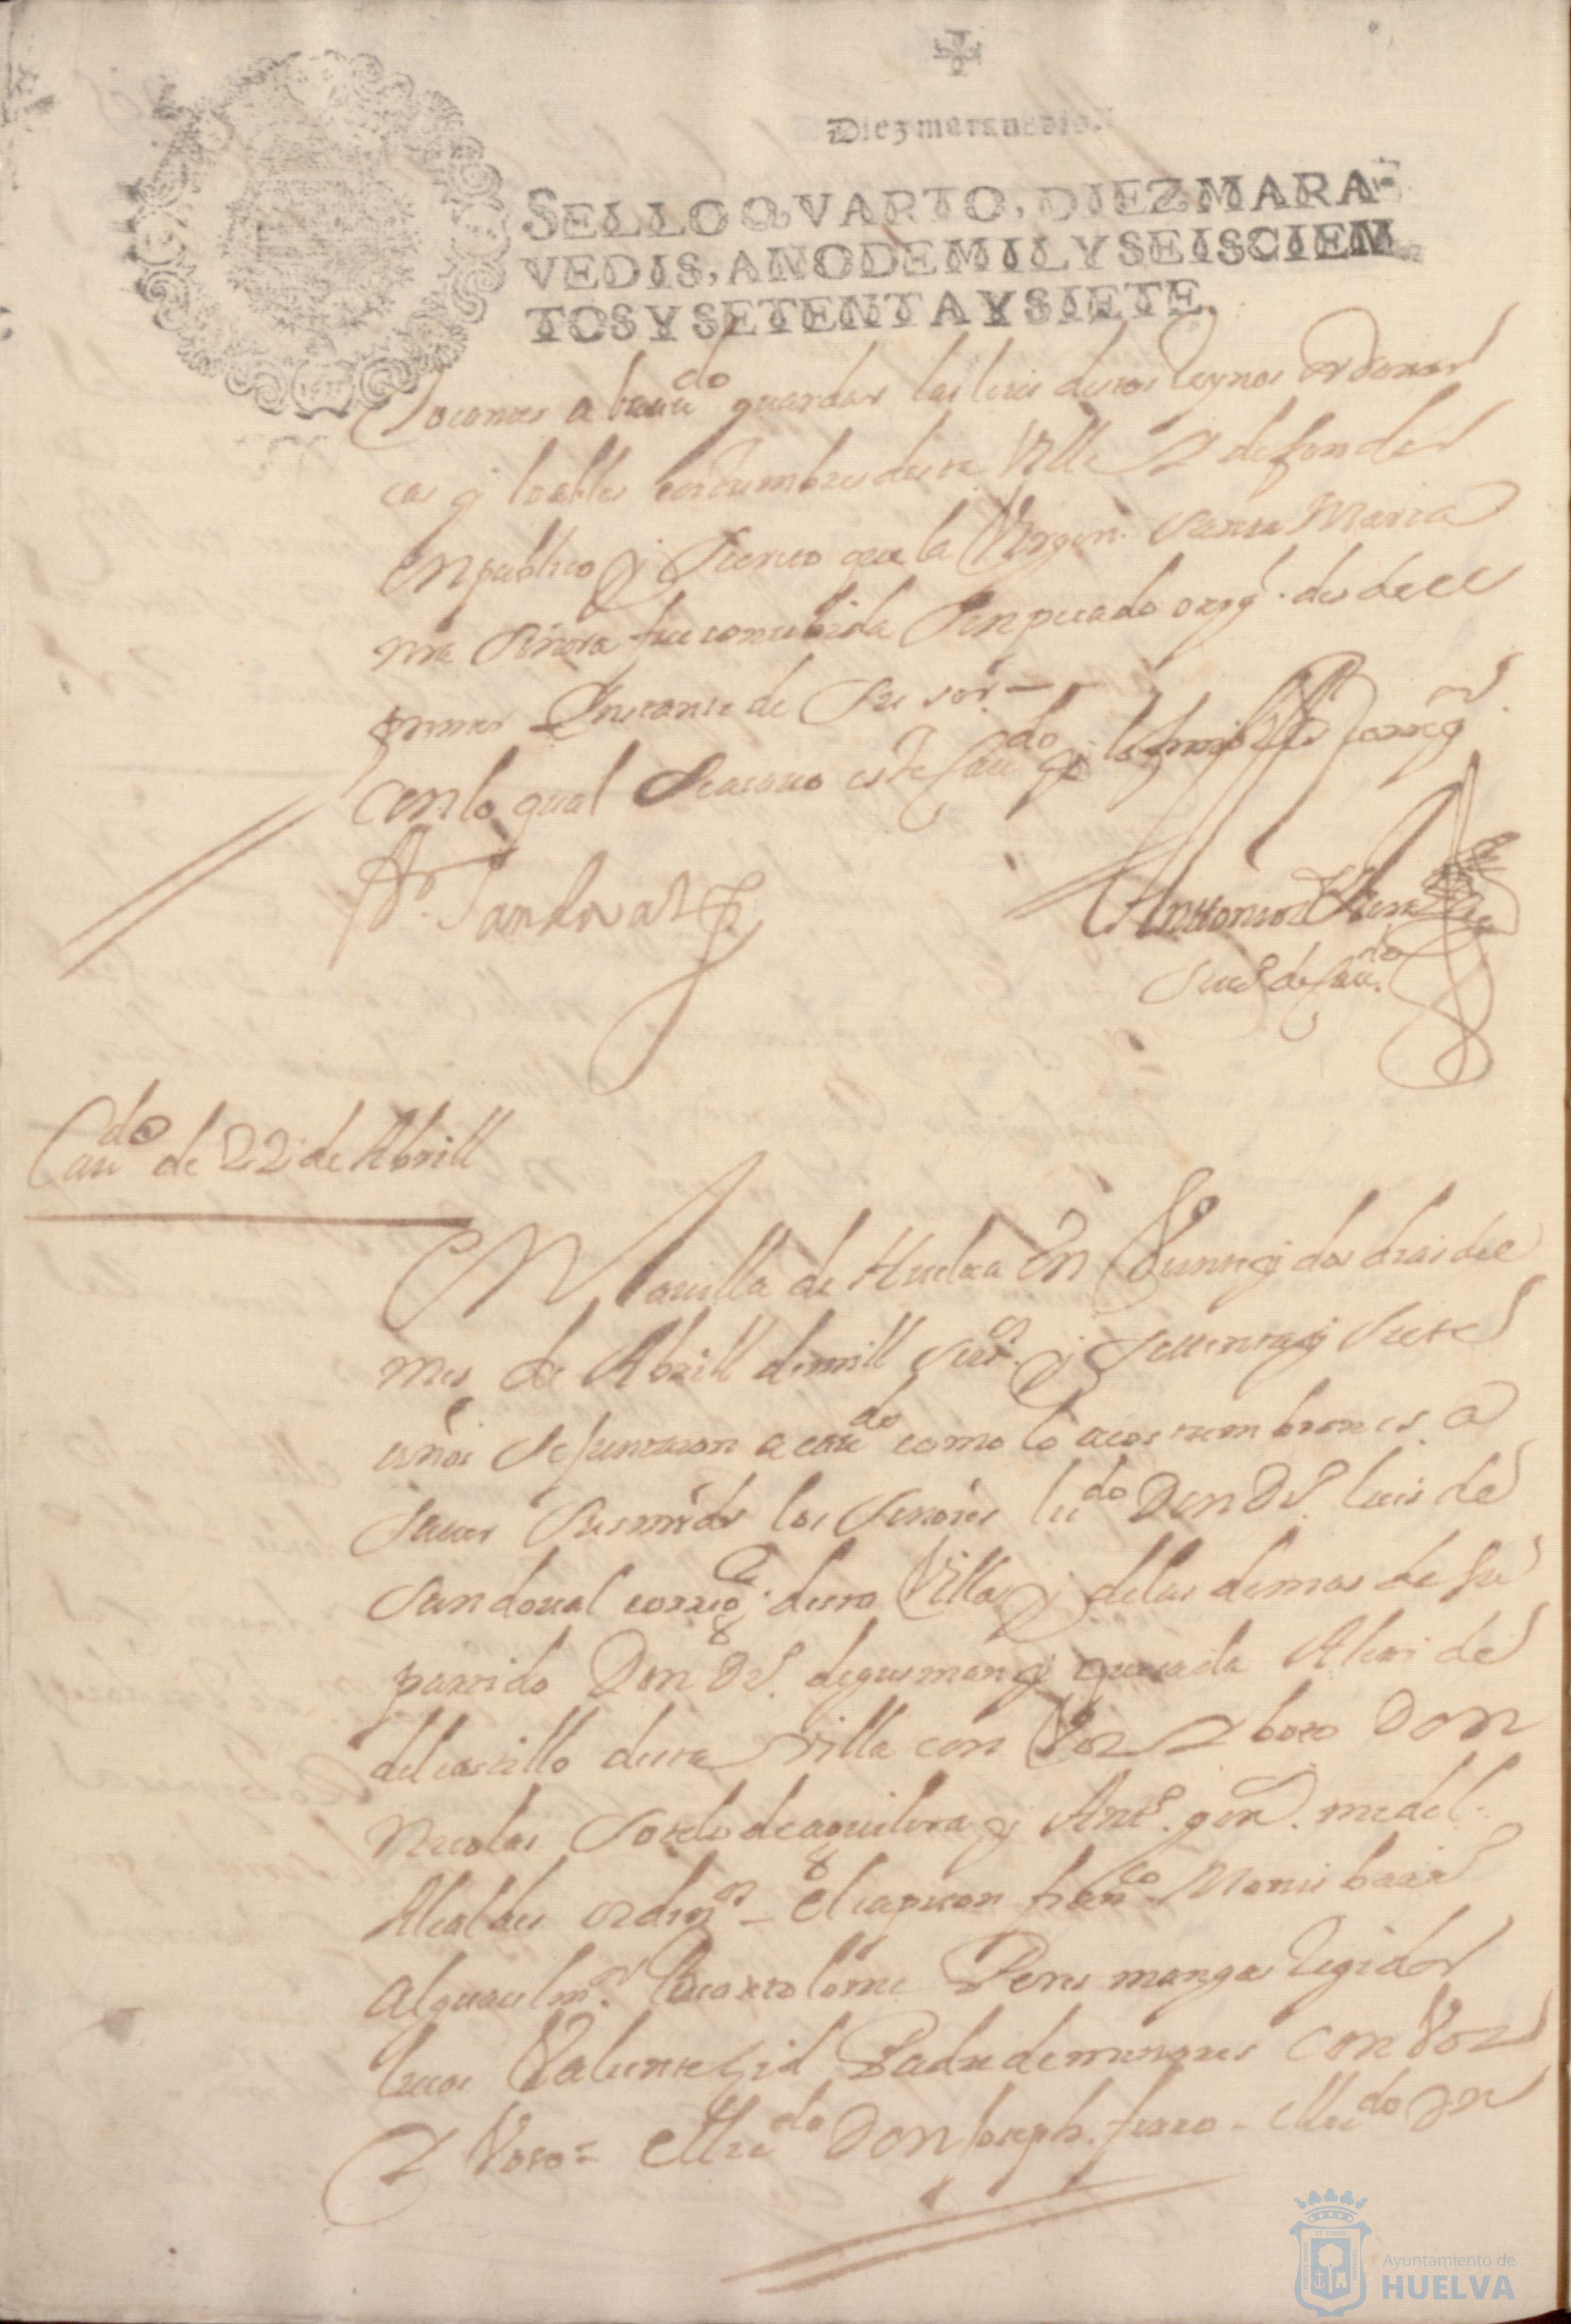 Diez maravedis.
SELLO QVARTO, DIEZ MARA-
VEDIS, AÑO DE MIL Y SEISCIEN
TOS Y SETENTA Y SIETE.
1677
tocantes a guardar las leies destos Reynos ordenan
cas y loables costumbres desta Villa Y defender
en publico y secreto que la Virgen Santa Maria
nra señora fue consebida sin pecado orig.l desde el
primer Instante de su ser
con lo qual se acauo este Cau.do y lo firmo correg.or
Sandoval
Anttonio
de Cau.do
Cau.do de 22 de Abrill
En la uilla de Huelua en Veinte y dos dias del
mes de Abrill de mill seis.os y settenta y siete
años se juntaron a cau.do como lo acostumbran es a
sauer sus mrds los señores lic.do Don D.o luis de
Sandoual correg.or desta Villa y de las demas de su
partido Don D.o de gusman y quesada Alcai de
del castillo desta villa con Voz Y boto Don
Nicolas Sotelo de aguilera y Ant.o gon. medel
Alcaldes ordin.os - El capitan fran.co
Alguacil m.or Bartolome Peres manga Regidor
lucas Valiente Cid Padre de menores con Voz
Y Voto = el lic.do Don Joseph - el lic.do Dn
Ayuntamiento de
HUELVA